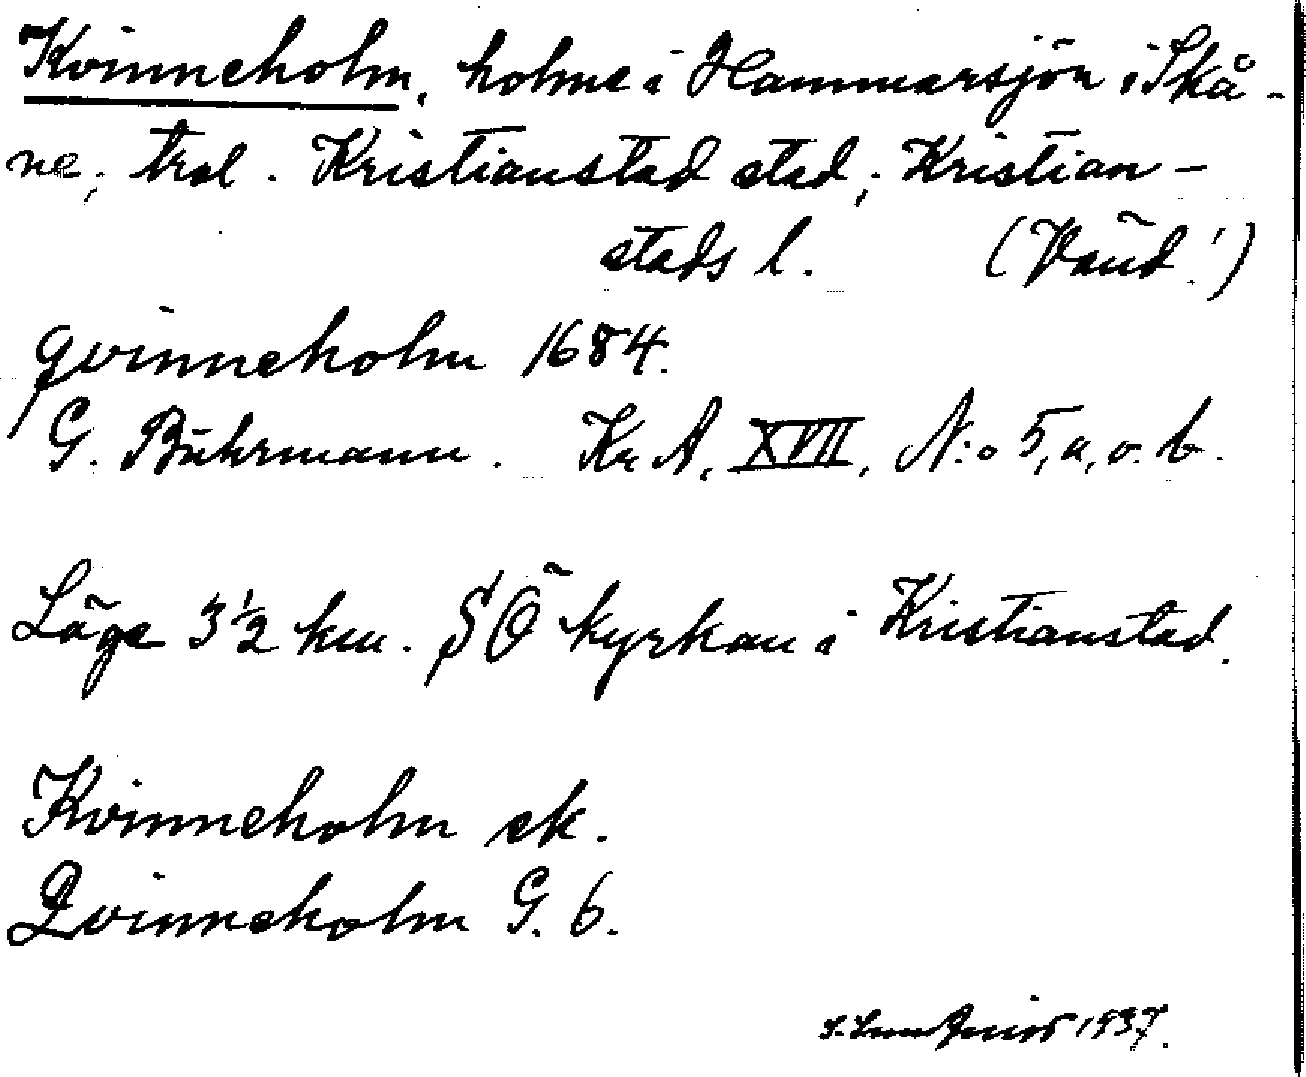 Kvinneholm, holme i Hammarsjön i Skå-
ne, trol. Kristianstad stad, Kristian-
stads l. (Vänd!)
qvinneholm 1684.
G. Buhrmann. Kr A, XVII, N:o 5, a, o. b.
Läge 3 1/2 km. SÖ kyrkan i Kristianstad.
Kvinneholm ek.
Qvinneholm G. b.
1937.